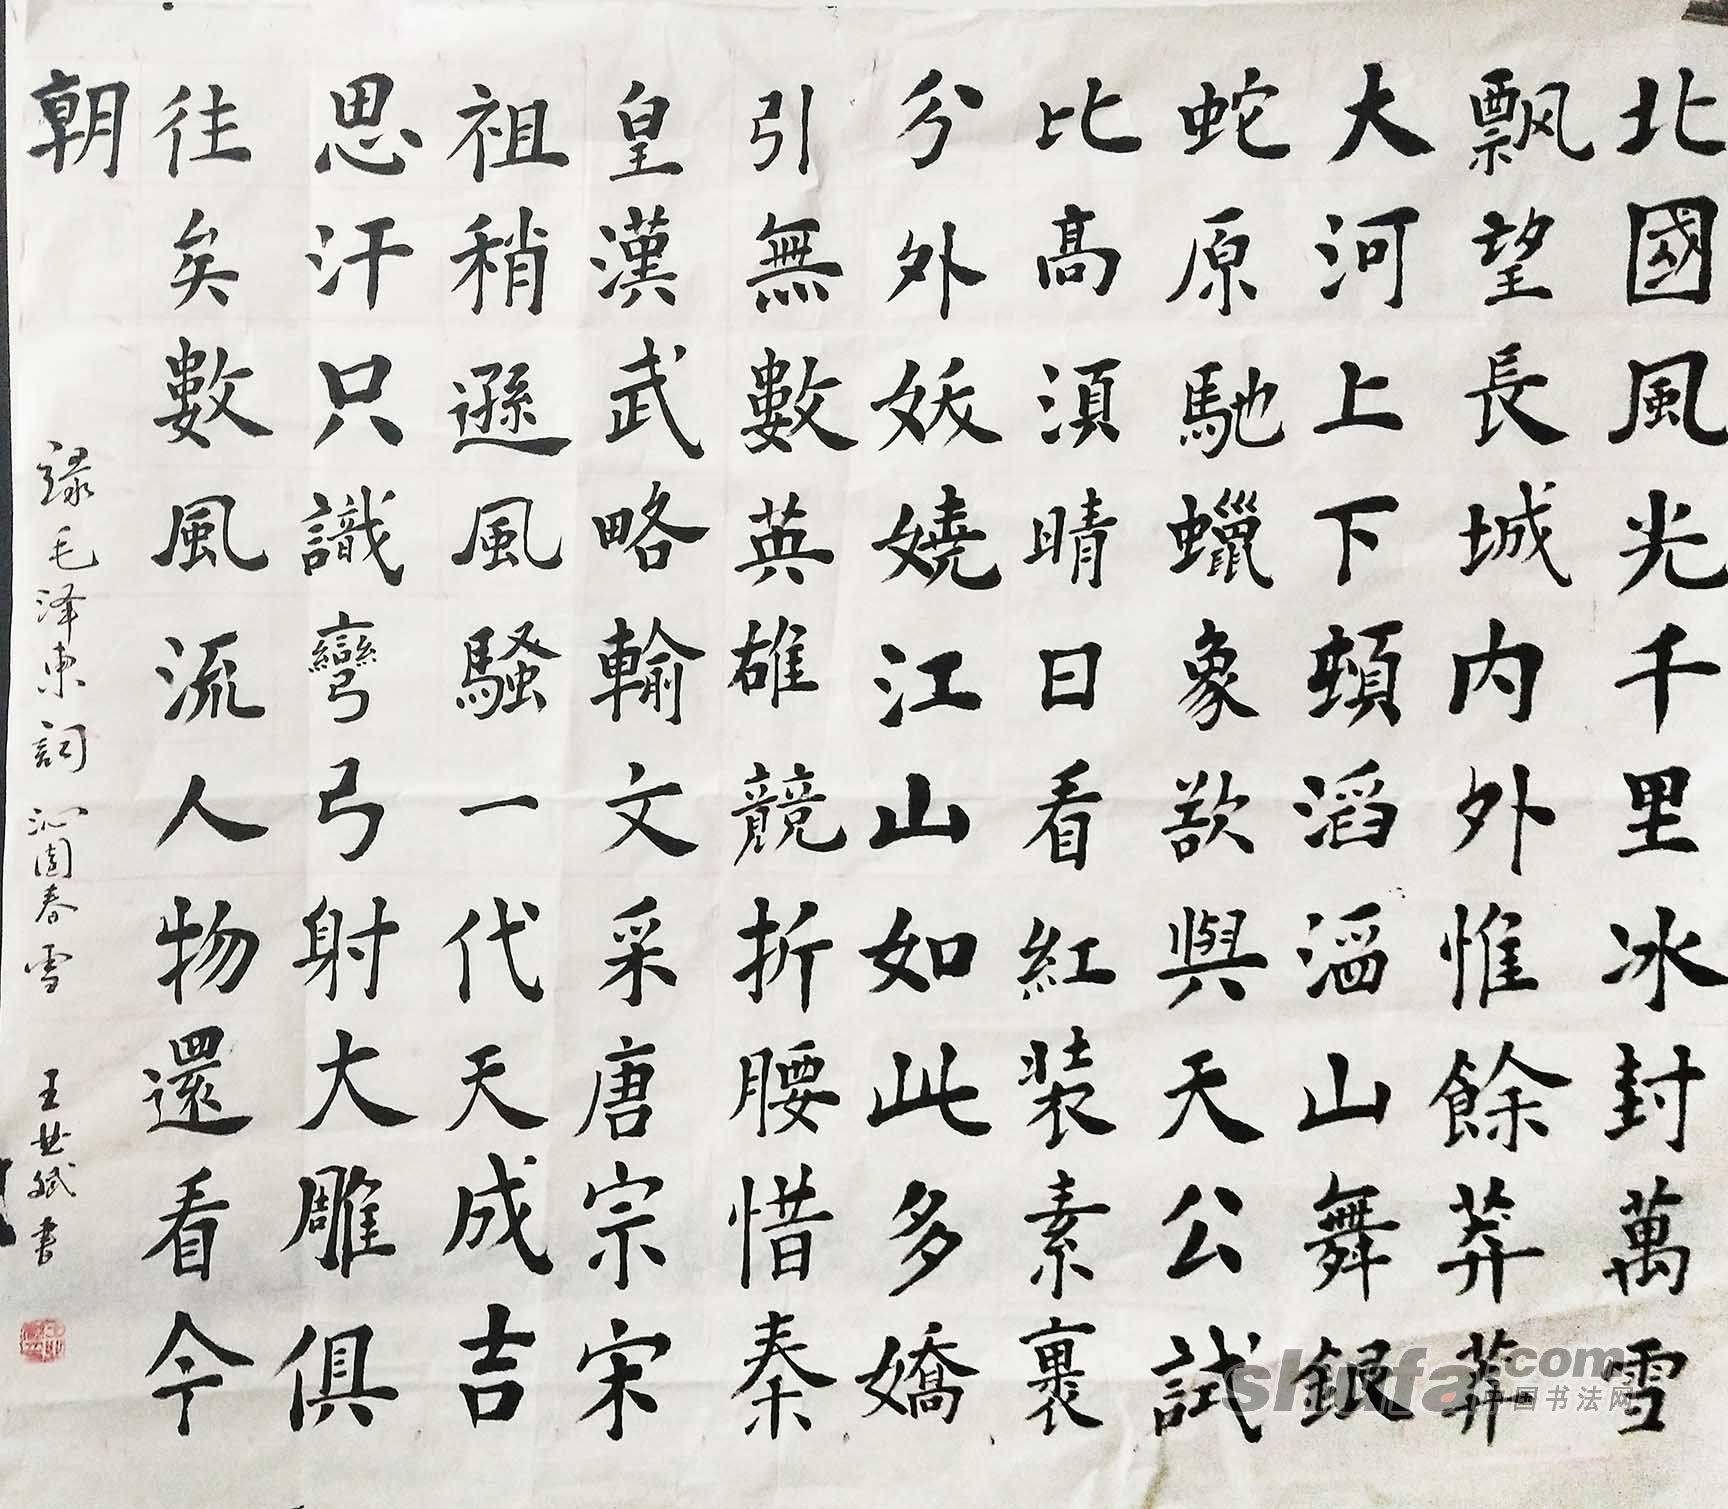 北國風光千里冰封萬雪
飘望長城内外惟餘莽莽
大河上下頓滔滔山舞銀
蛇原馳蠟象欲與天公試
比高須晴日看紅装素裹
分外妖嬈江山如此多嬌
引無數英雄競折腰惜秦
皇漢武略輸文采唐宗宋
祖稍遜風騷一代天成吉
思汗只識彎弓射大雕俱
往矣數風流人物還看今
朝
録毛泽東詞 沁園春雪 王世斌書
shufa.com
中国书法网